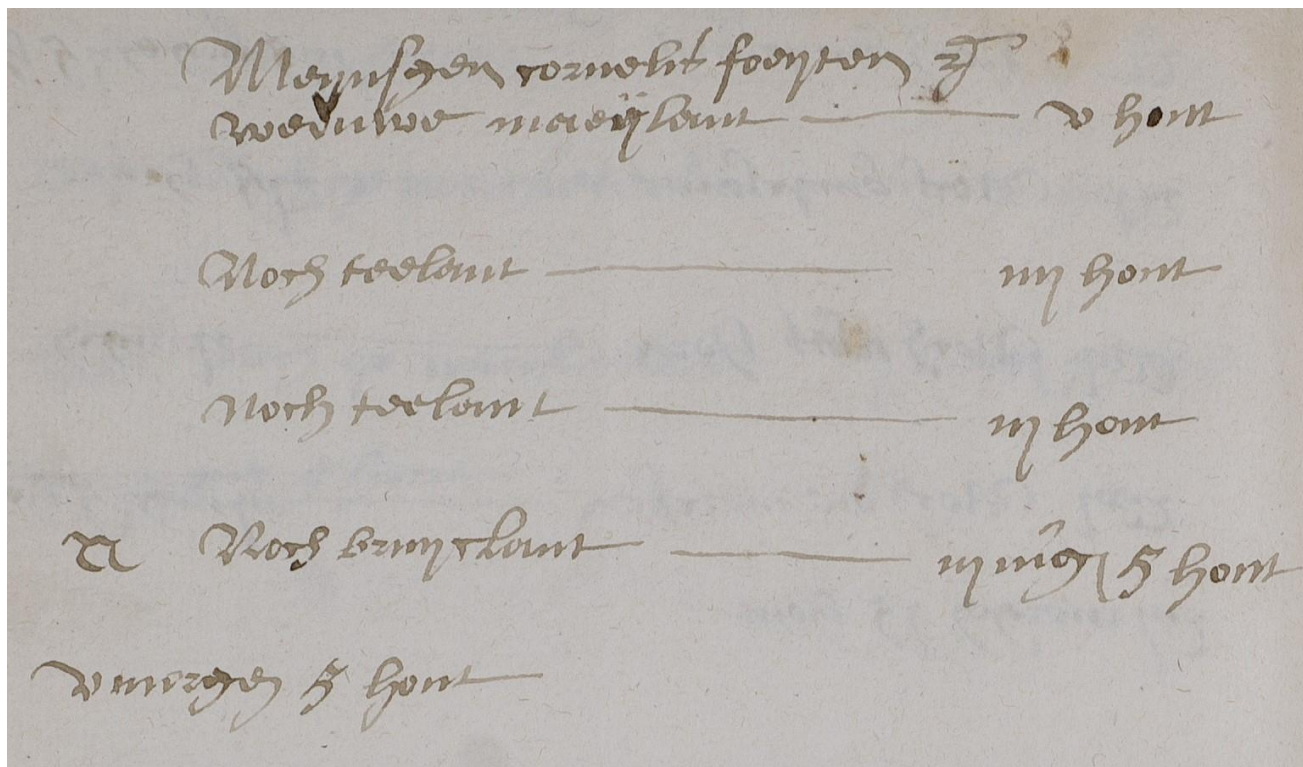 Meynsgen cornelis foeyten
weduwe maeylant — v hont
Noch teelant — iiij hont
Noch teelant — iij hont
Noch bruyclant — iij m̄g ½ hont
v mergen ½ hont